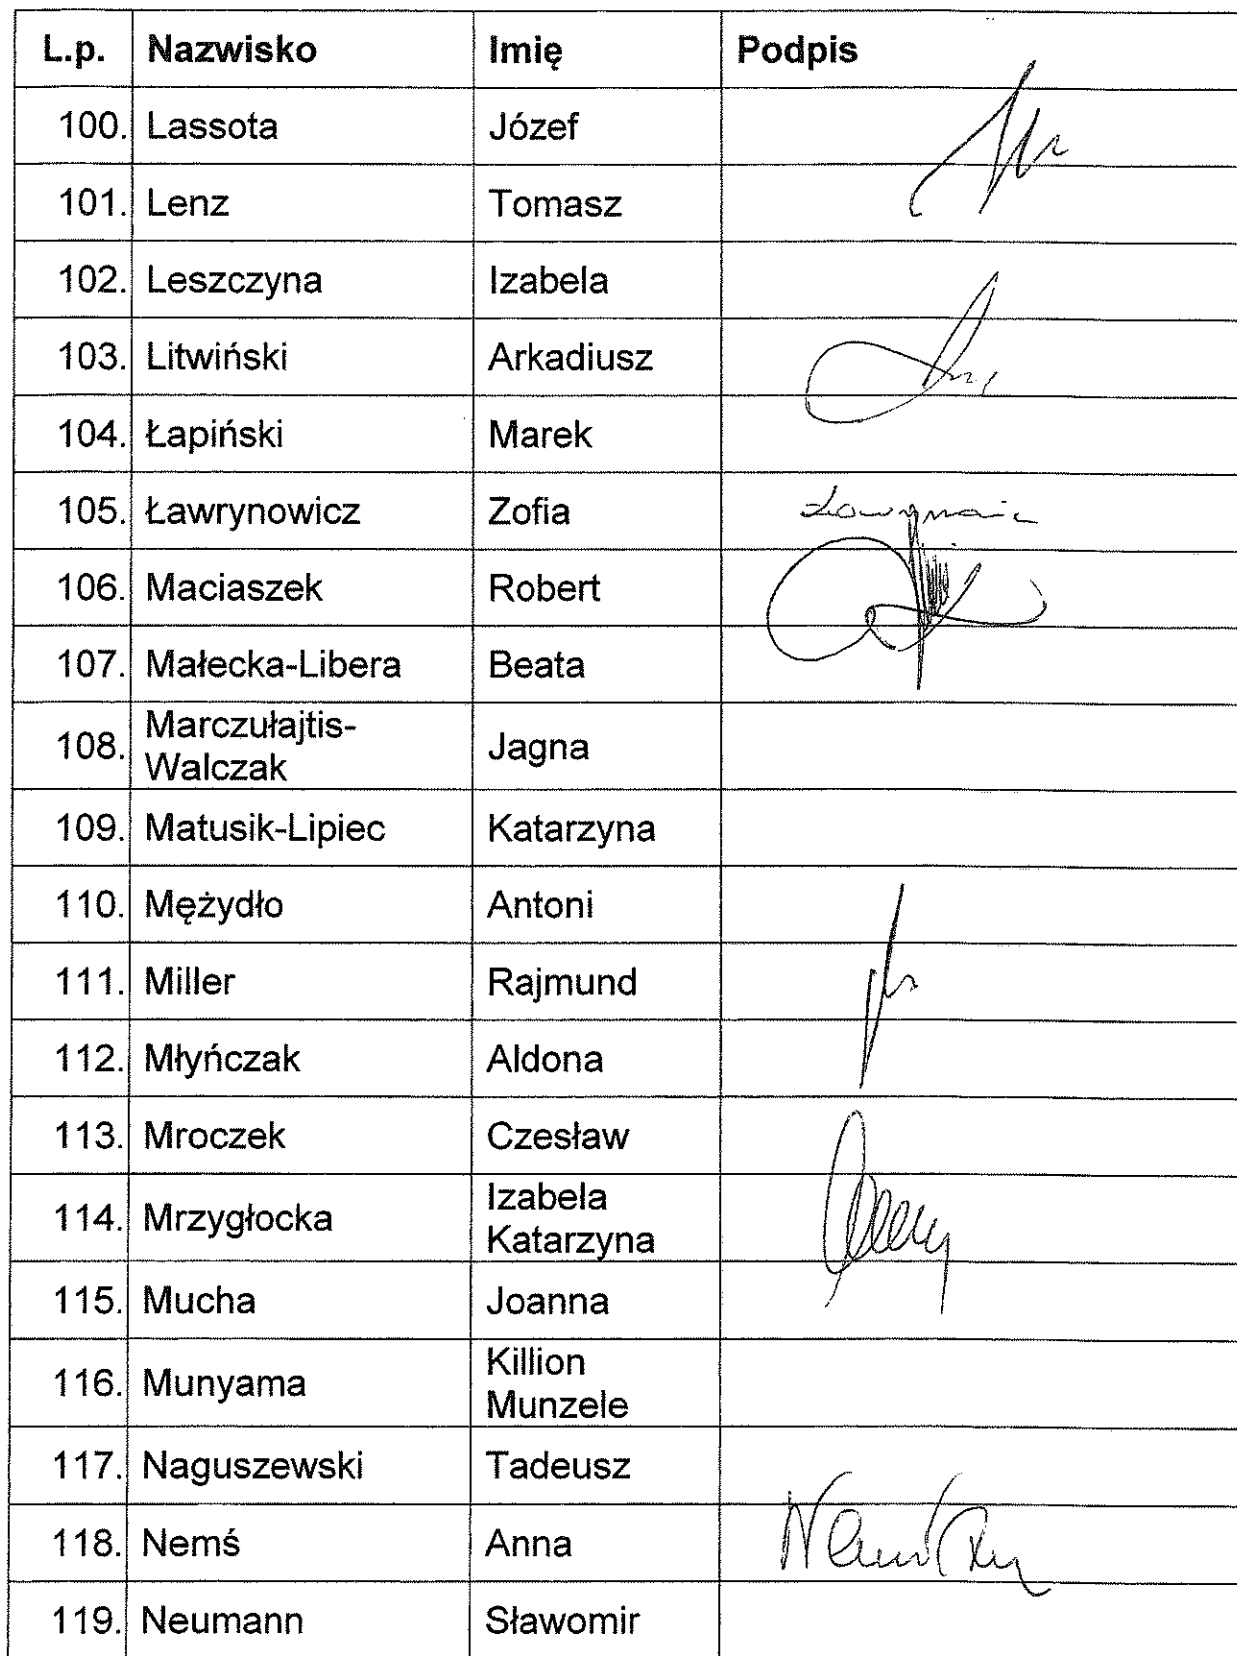 L.p. Nazwisko Imię Podpis
100. Lassota Józef
101. Lenz Tomasz
102. Leszczyna Izabela
103. Litwiński Arkadiusz
104. Łapiński Marek
105. Ławrynowicz Zofia
106. Maciaszek Robert
107. Małecka-Libera Beata
108. Marczułajtis-
Walczak Jagna
109. Matusik-Lipiec Katarzyna
110. Mężydło Antoni
111. Miller Rajmund
112. Młyńczak Aldona
113. Mroczek Czesław
114. Mrzygłocka Izabela
Katarzyna
115. Mucha Joanna
116. Munyama Killion
Munzele
117. Naguszewski Tadeusz
118. Nemś Anna
119. Neumann Sławomir